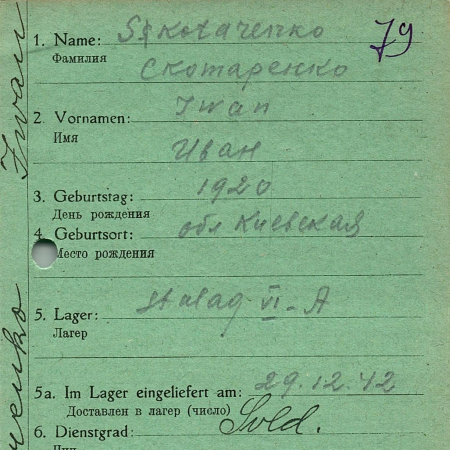 79
1. Name: Skotarenko
Фамилия
Скотаренко
2. Vornamen: Iwan
Имя
Иван
3. Geburtstag: 1920
День рождения
4. Geburtsort: обл Киевская
Место рождения
5. Lager: Stalag VI-A
Лагер
5a. Im Lager eingeliefert am: 29.12.42
Доставлен в лагер (число)
6. Dienstgrad: Sold.
Iwan